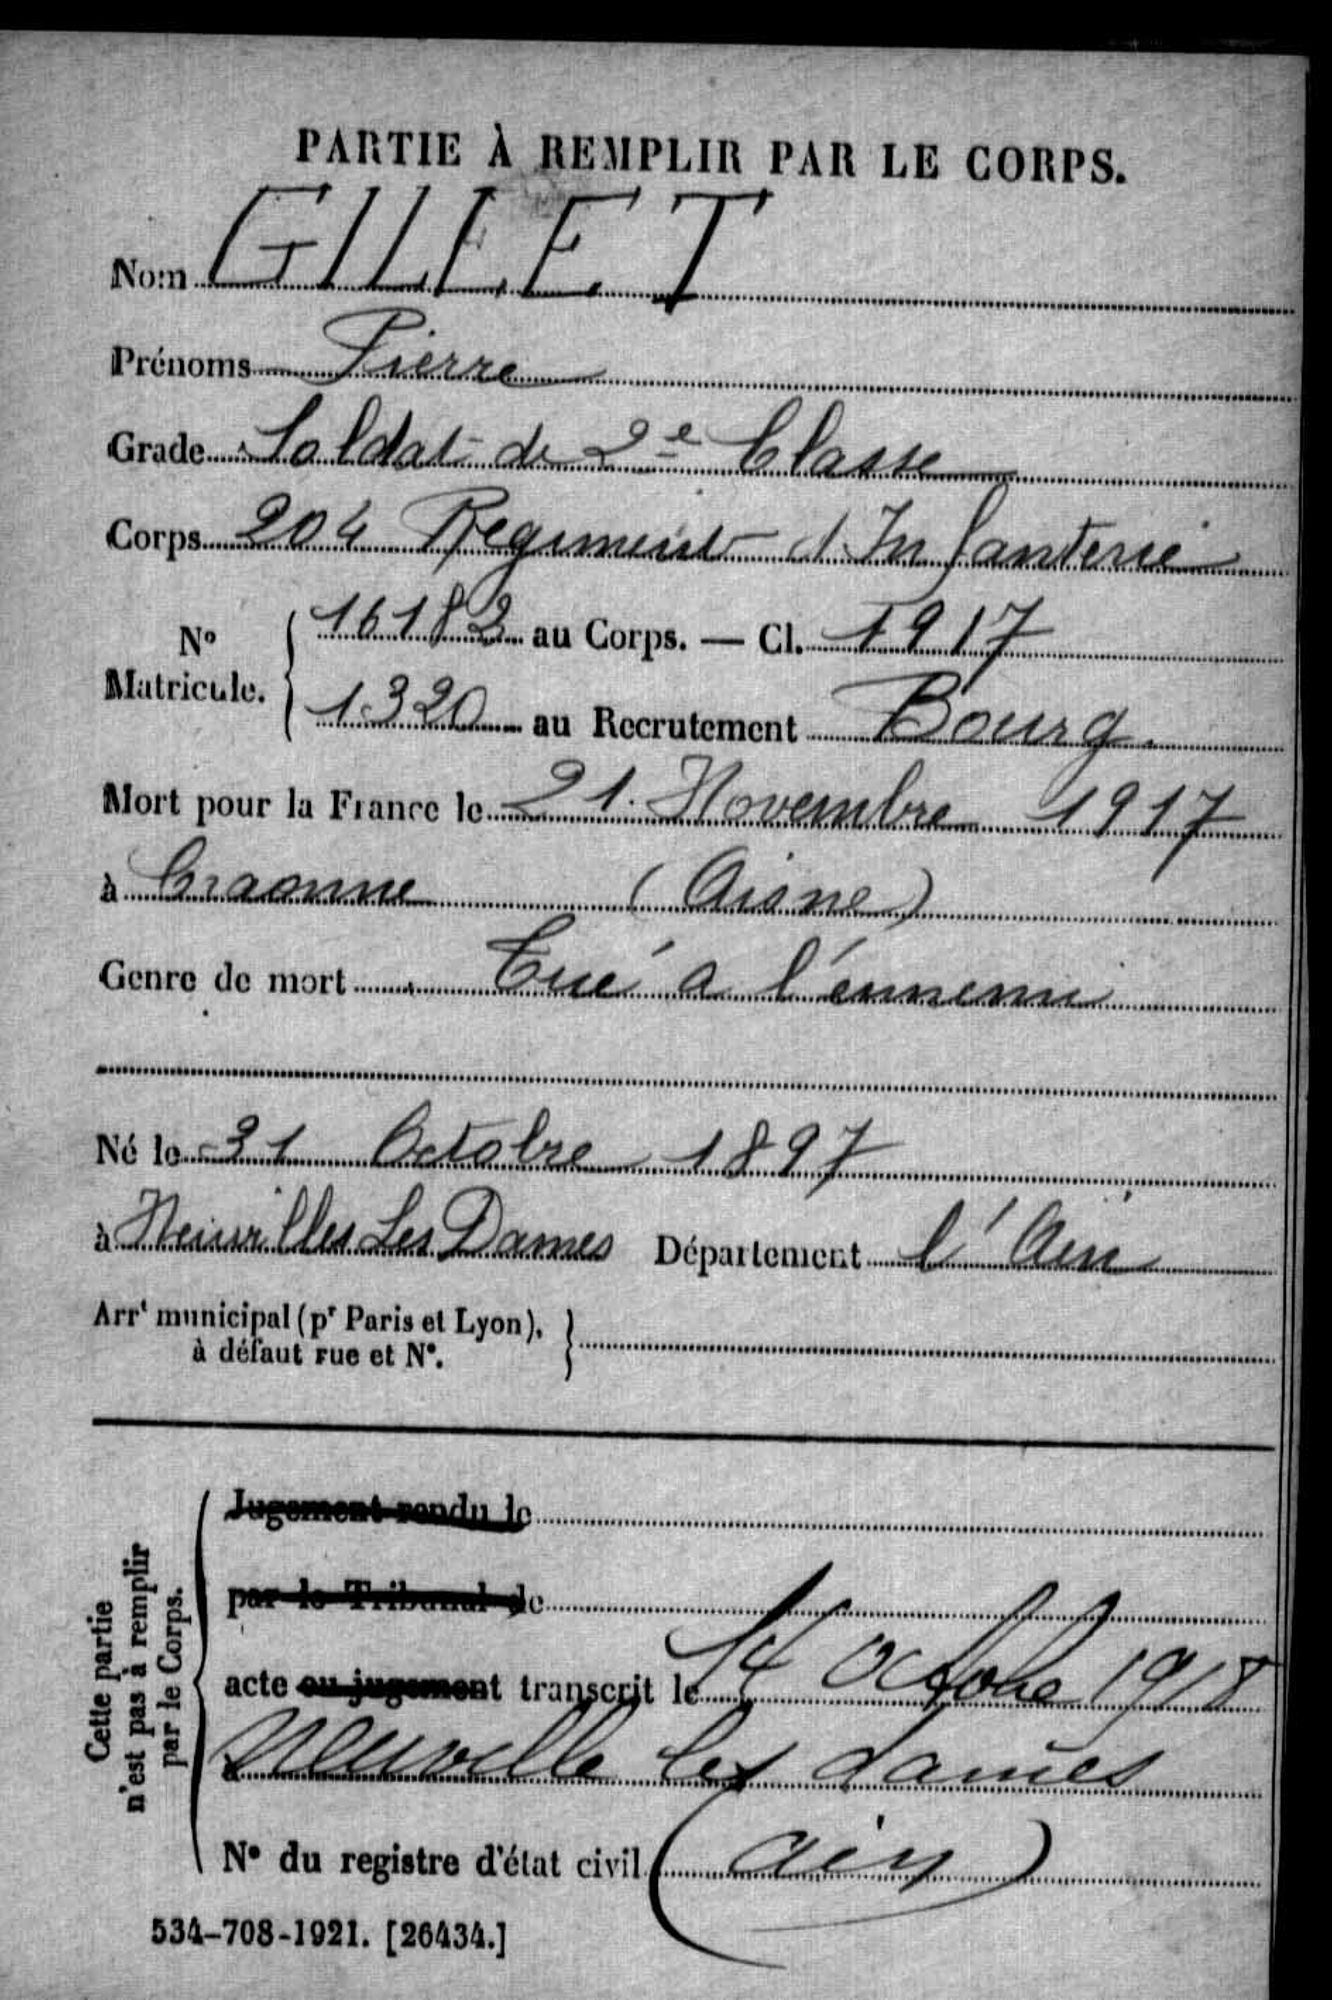 PARTIE À REMPLIR PAR LE CORPS.
Nom GILLET
Prénoms Pierre
Grade Soldat de 2e Classe
Corps 204 Regiment d'Infanterie
No Matricule. { 16182 au Corps. — Cl. 1917
1320 au Recrutement Bourg.
Mort pour la France le 21 Novembre 1917
à Craonne (Aisne)
Genre de mort Tué a l'énnemi
Né le 31 Octobre 1897
à Neuvilles Les Dames Département l'Ain
Arrt municipal (pr Paris et Lyon),
à défaut rue et N°. }
Cette partie
n'est pas à remplir
par le Corps.
Jugement rendu le
par le Tribunal de
acte ou jugement transcrit le 14 octobre 1918
à Neuville les dames
N° du registre d'état civil (ain)
534-708-1921. [26434.]